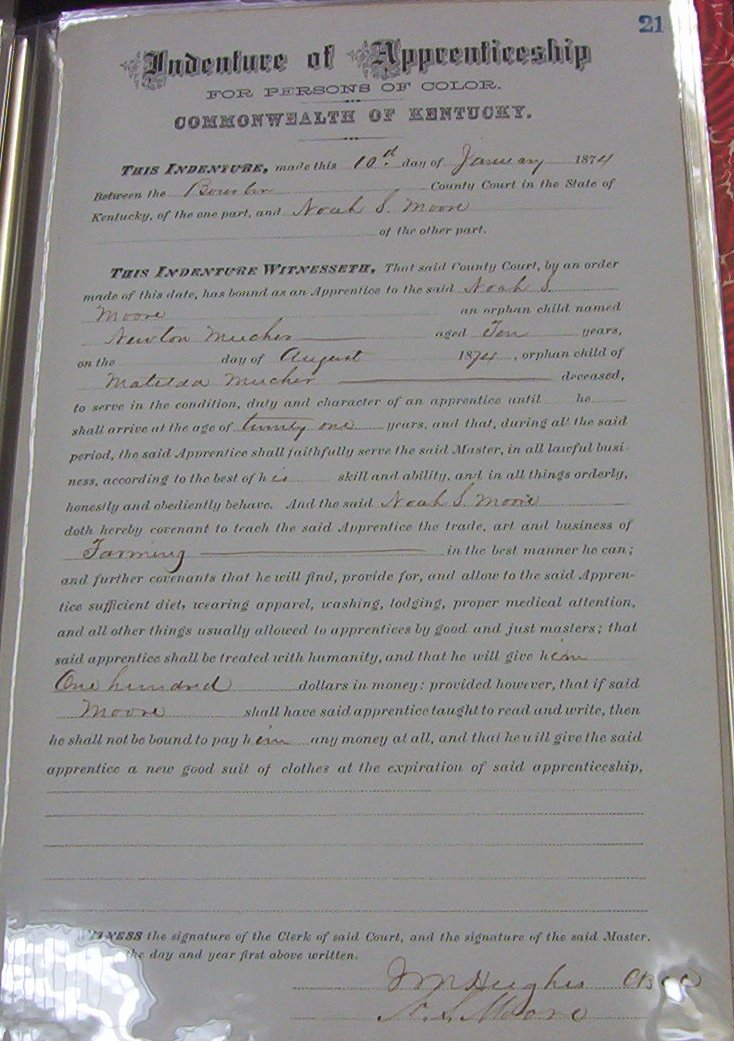 21
Indenture of Apprenticeship
FOR PERSONS OF COLOR.
COMMONWEALTH OF KENTUCKY.
THIS INDENTURE, made this 10d. day of January 1874
Between the Bourbon County Court in the State of
Kentucky, of the one part, and Noah S. Moore
of the other part.
THIS INDENTURE WITNESSETH, That said County Court, by an order
made of this date, has bound as an Apprentice to the said Noah S.
Moore an orphan child named
Newton aged Ten years,
on the day of August 1874, orphan child of
Matilda deceased,
to serve in the condition, duty and character of an apprentice until he
shall arrive at the age of twenty one years, and that, during all the said
period, the said Apprentice shall faithfully serve the said Master, in all lawful busi-
ness, according to the best of his skill and ability, and in all things orderly,
honestly and obediently behave. And the said Noah S. Moore
doth hereby covenant to teach the said Apprentice the trade, art and business of
Farming in the best manner he can;
and further covenants that he will find, provide for, and allow to the said Appren-
tice sufficient diet, wearing apparel, washing, lodging, proper medical attention,
and all other things usually allowed to apprentices by good and just masters; that
said apprentice shall be treated with humanity, and that he will give him
One hundred dollars in money: provided however, that if said
Moore shall have said apprentice taught to read and write, then
he shall not be bound to pay him any money at all, and that he will give the said
apprentice a new good suit of clothes at the expiration of said apprenticeship,
WITNESS the signature of the Clerk of said Court, and the signature of the said Master,
the day and year first above written.
Hughes
N. S. Moore